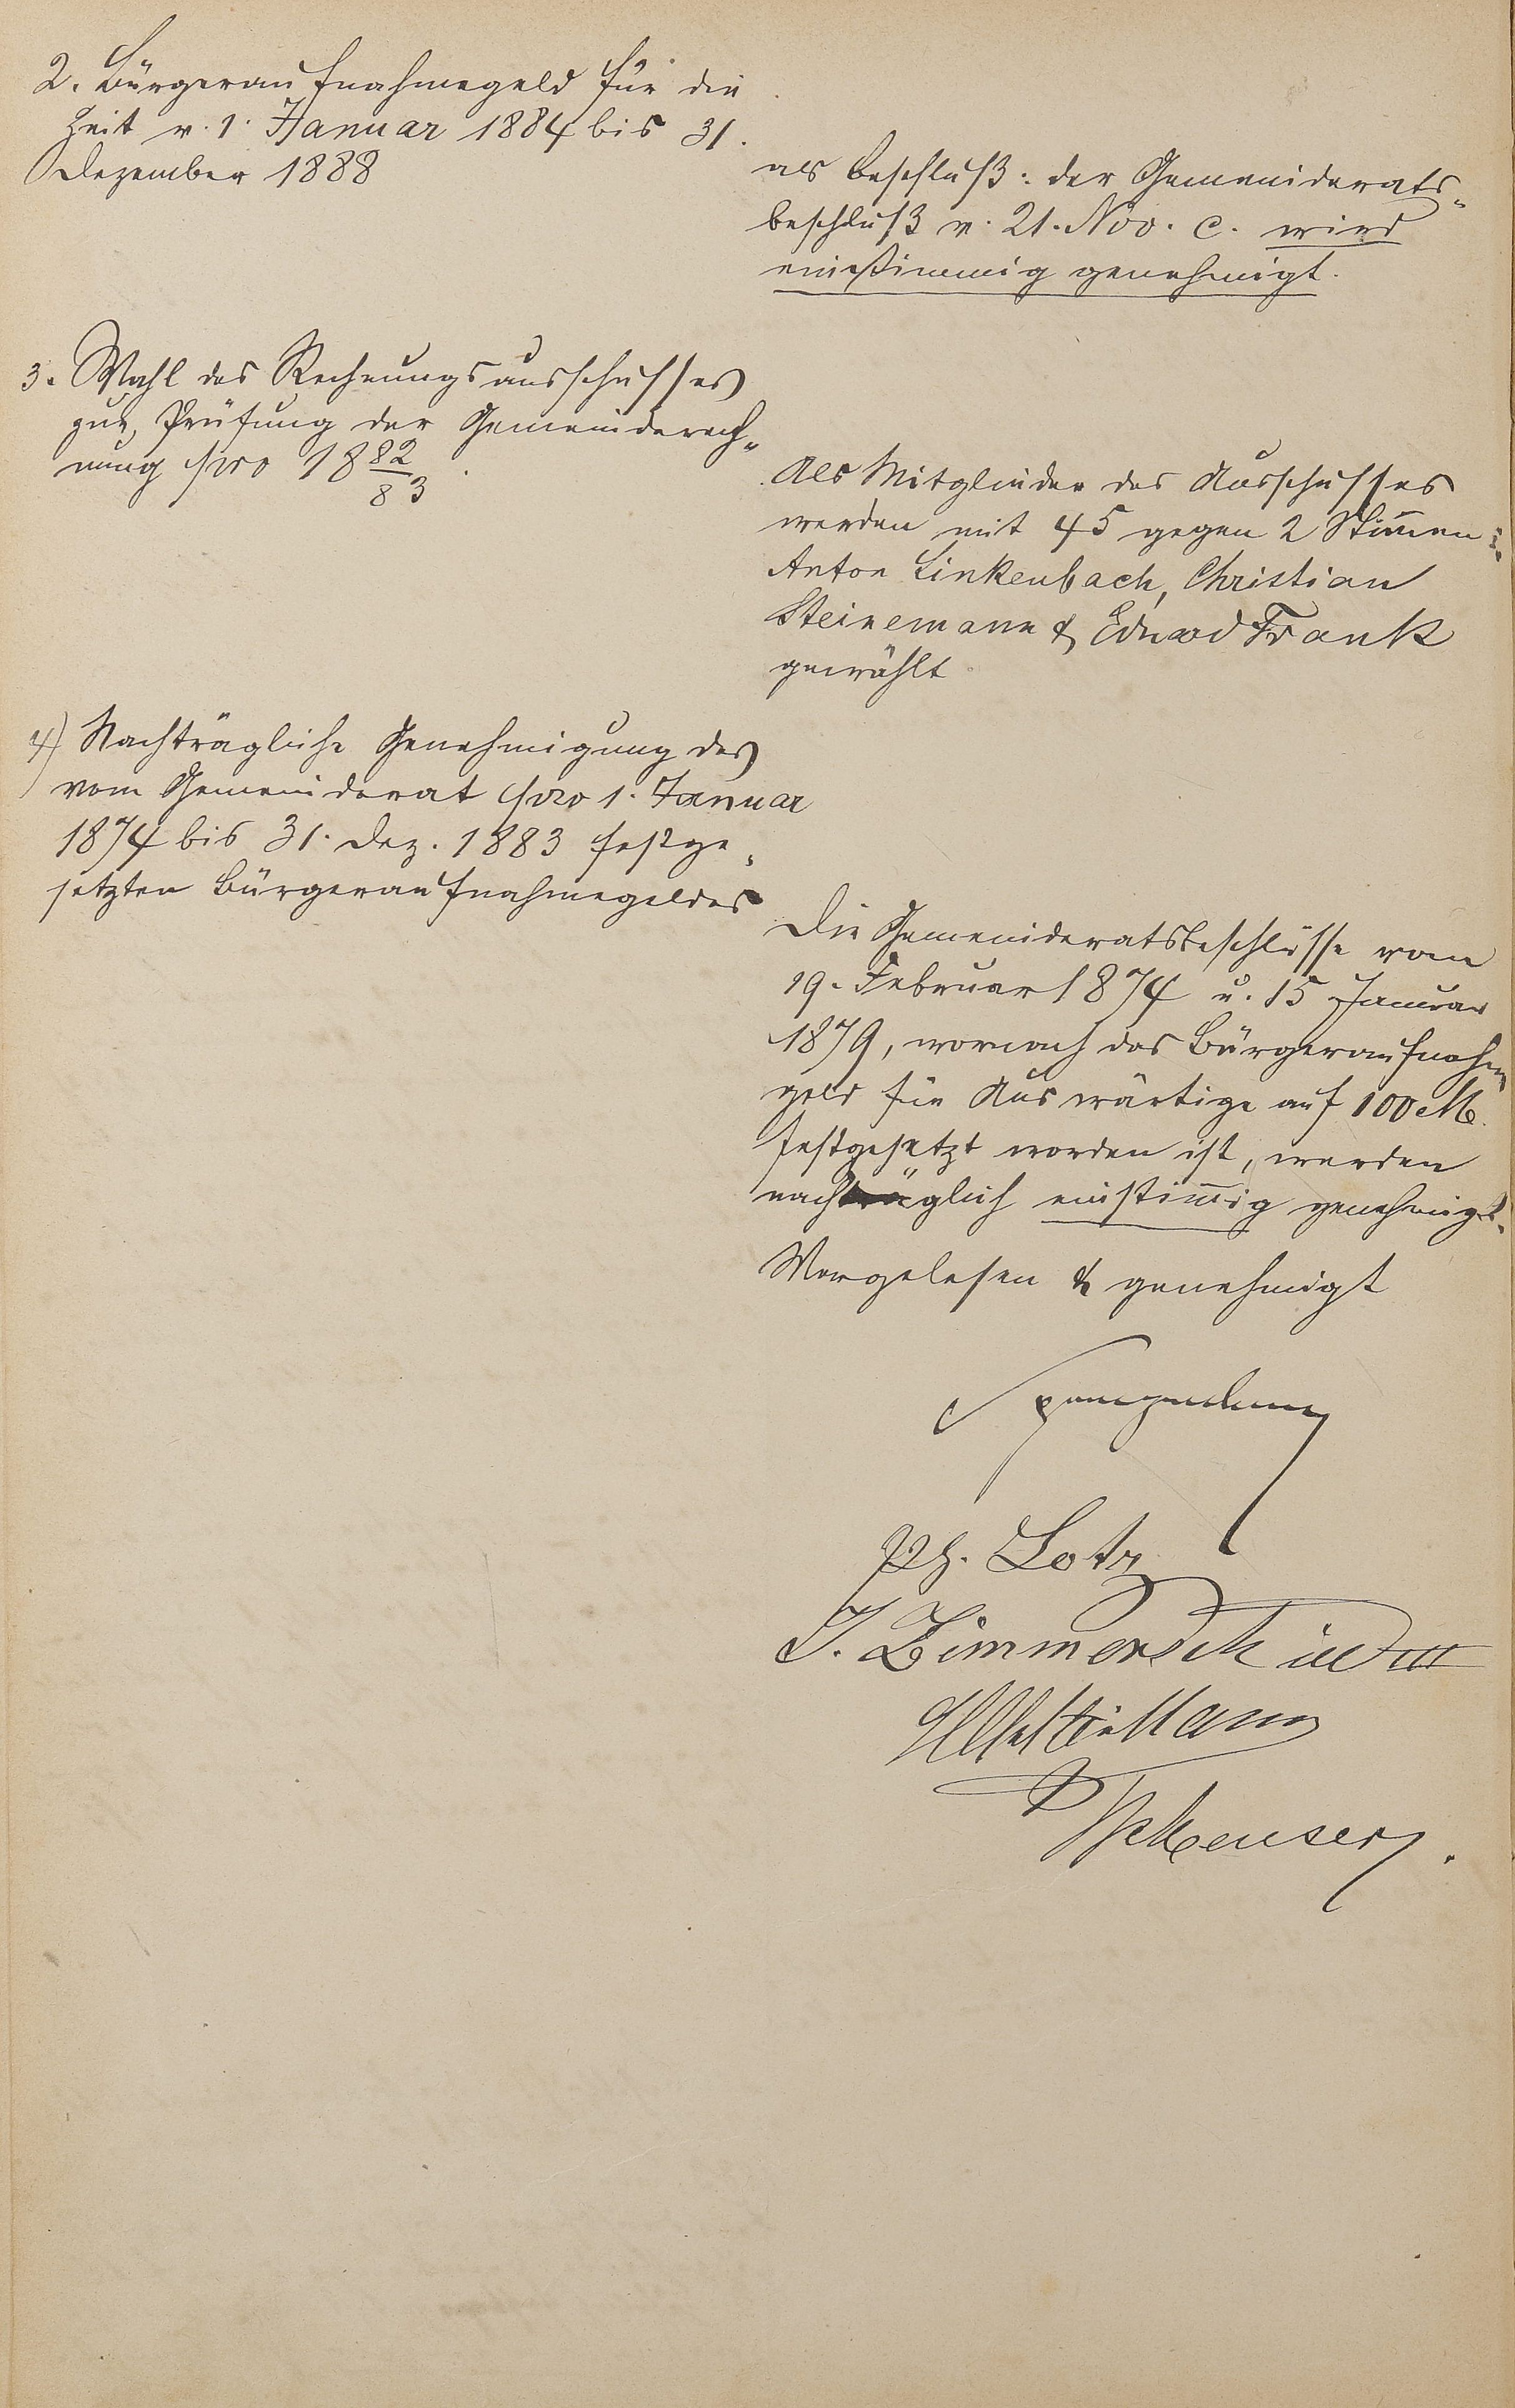 2. Bürgeraufnahmegeld für die
Zeit v. 1. Januar 1884 bis 31.
Dezember 1888
als Beschluß: der Gemeinderats-
beschluß v. 21. Nov. c. wird
einstimmig genehmigt.
3. Wahl des Rechnungsausschusses
zur Prüfung der Gemeinderech-
nung pro 1882/83.
Als Mitglieder des Ausschusses
werden mit 45 gegen 2 Stimmen:
Anton Linkenbach, Christian
Steinemann & Eduard Frank
gewählt
4) Nachträgliche Genehmigung des
vom Gemeinderat pro 1. Januar
1874 bis 31. Dez. 1883 festge-
setzten Bürgeraufnahmegeldes
Die Gemeinderatsbeschlüsse vom
19. Februar 1874 u. 15 Januar
1879, wornach das Bürgeraufnahme
geld für Auswärtige auf 100 M.
festgesetzt worden ist, werden
nachträglich einstimmig genehmigt.
Vorgelesen & genehmigt
Ph. Lotz
J. Zimmerschied III